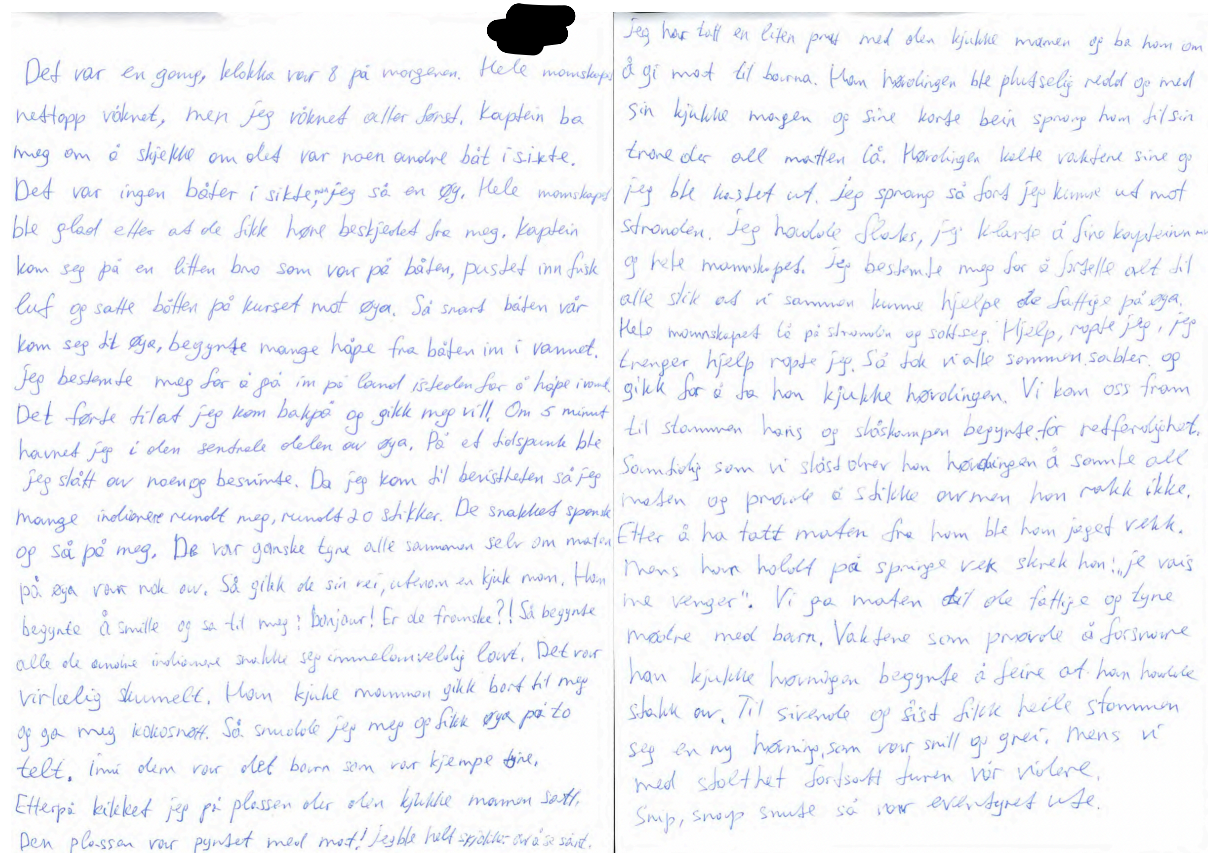 Det var en gang, klokka var 8 på morgenen. Hele mamskapet
nettopp våknet, men jeg våknet aller først. Kaptein ba
meg om å skjekke om det var noen andre båt i sikte.
Det var ingen båter i sikte, men jeg så en øy. Hele mamskapet
ble glad etter at de fikk høre beskjedet fra meg. Kaptein
kom seg på en litten bro som var på båten, pustet inn frisk
luf og satte båtten på kurset mot øya. Så snart båten vår
kom seg til øya, begynte mange håpe fra båten inn i vannet.
Jeg bestemte meg for å gå inn på land isteden for å håpe i vannet.
Det førte til at jeg kom bakpå og gikk meg vill! Om 5 minutt
havnet jeg i den sentrale delen av øya. På et tidspunk ble
jeg slått av noen og besvimte. Da jeg kom til bevistheten så jeg
mange indianere rundt meg, rundt 20 stikker. De snakket spansk
og så på meg. De var ganske tyne alle sammen selv om maten
på øya var nok av. Så gikk de sin vei, utenom en kjuk man. Han
begynte å smille og sa til meg: Bonjour! Er de franske?! Så begynte
alle de andre indianere snakke seg immelom veldig lavt. Det var
virkelig skumelt. Han kjuke mannen gikk bort til meg
og ga meg kokosnøtt. Så snudde jeg meg og fikk øya på to
telt. Inni dem var det barn som var kjempe tyne.
Etterpå kikket jeg på plassen der den kjukke mannen satt.
Den plassen var pyntet med mat! Jeg ble helt sjokket av å se sånt.
Jeg har tatt en liten prat med den kjukke mannen og ba han om
å gi mat til barna. Han høvdingen ble plutselig redd og med
sin kjukke magen og sine korte bein sprang han til sin
trone der all matten lå. Høvdingen kalte vaktene sine og
jeg ble kastet ut. Jeg sprang så fort jeg kunne ut mot
stranden. Jeg hadde flaks, jeg klarte å fine kapteinen min
og hele mannskapet. Jeg bestemte meg for å fortelle alt til
alle slik at vi sammen kunne hjelpe de fattige på øya.
Hele mannskapet lå på strandin og solt seg. Hjelp, ropte jeg, jeg
trenger hjelp ropte jeg. Så tok vi alle sammen sabler og
gikk for å ta han kjukke høvdingen. Vi kom oss fram
til stammen hans og slåskampen begynte for retferdighet.
Samtidig som vi slåst drev han høvdingen å samle all
maten og prøvde å stikke av men han rakk ikke.
Etter å ha tatt maten fra ham ble ham jaget vekk.
Mens han holdt på springe vek skrek han: "je vais
me venger". Vi ga maten til de fattige og tyne
mødre med barn. Vaktene som prøvde å forsvare
han kjukke høvningen begynte å feire at han hadde
stakk av. Til sivende og sist fikk heile stammen
seg en ny høvning, som var snill og grei. Mens vi
med stolthet fortsatt turen vår videre.
Snip, snap snute så var eventyret ute.